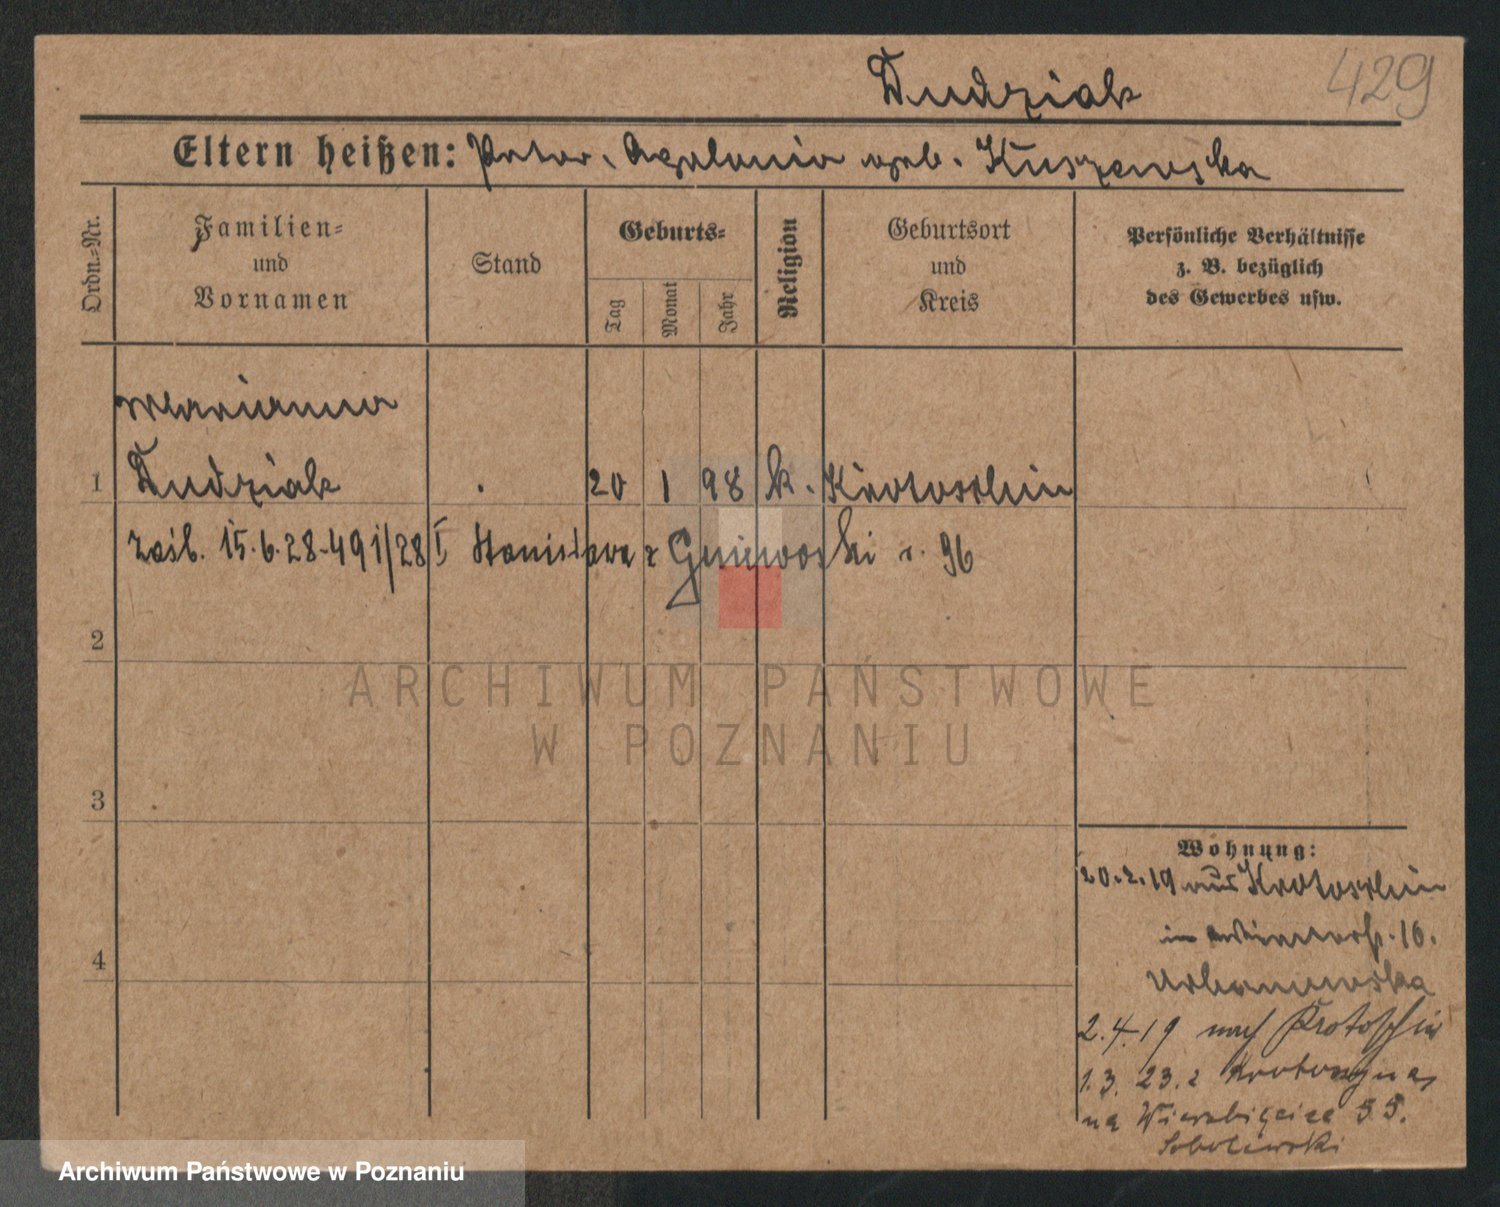 Dudziak
429
Eltern heißen: Peter, Apolonia geb. Kuszewska
Ordn.=Nr.
Familien=
und
Vornamen
Stand
Geburts=
Tag
Monat
Jahr
Religion
Geburtsort
und
Kreis
Persönliche Verhältnisse
z. B. bezüglich
des Gewerbes usw.
Marianna
1 Dudziak 20 1 98 k. Krotoschin
15.6.28-491/28 I Stanisława Gniewoski 96
2
ARCHIWUM PAŃSTWOWE
W POZNANIU
3
4
Wohnung:
20.2.19 aus Krotoschin
16.
Urbanowska
2.4.19 nach Krotoschin
1.3.23. z Krotoszyna
na Wierzbięcice 55.
Sobolewski
Archiwum Państwowe w Poznaniu